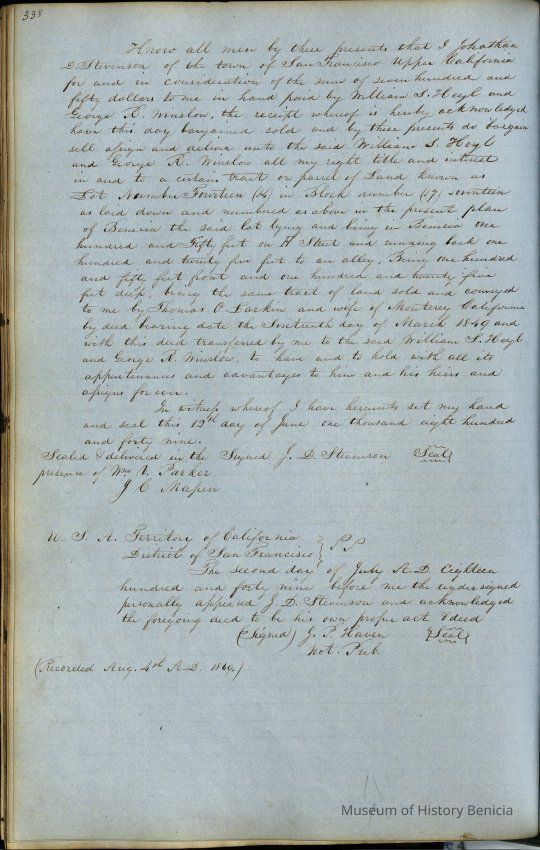 338
Know all men by these presents that I Johathan
D. Stevenson of the town of San Francisco Upper California
for and in consideration of the sum of seven hundred and
fifty dollars to me in hand paid by William S. Hoyt and
George R. Winslow, the receipt whereof is hereby acknowledged
have this day bargained sold and by these presents do bargain
sell assign and deliver unto the said William S. Hoyt
and George R. Winslow all my right title and interest
in and to a certain tract or parcel of Land known as
Lot Number Fourteen (14) in Block number (17) seventeen
as laid down and numbered as above in the present plan
of Benicia the said lot lying and being in Benicia one
hundred and Fifty feet on H Street and running back one
hundred and twenty five feet to an alley, Being one hundred
and fifty feet front and one hundred and twenty five
feet deep, being the same tract of land sold and conveyed
to me by Thomas O Larkin and wife of Monterey California
by deed bearing date the Sixteenth day of March 1849 and
with this deed transferred by me to the said William S. Hoyt
and George R. Winslow, to have and to hold with all its
appurtenances and advantages to him and his heirs and
assigns forever.
In witness whereof I have hereunto set my hand
and seal this 12th day of June one thousand eight hundred
and forty nine.
Sealed & delivered in the Signed J. D. Stevenson Seal
presence of Wm V. Parker
J C
U. S. A. Territory of California
District of San Francisco } S S
The second day of July A.D. Eighteen
hundred and forty nine before me the undersigned
personally appeared J. D. Stevenson and acknowledged
the foregoing deed to be his own proper act & deed
(Signed) J. P. Haven {Seal}
Not. Pub.
(Recorded Aug. 4th A.D. 1849,)
Museum of History Benicia